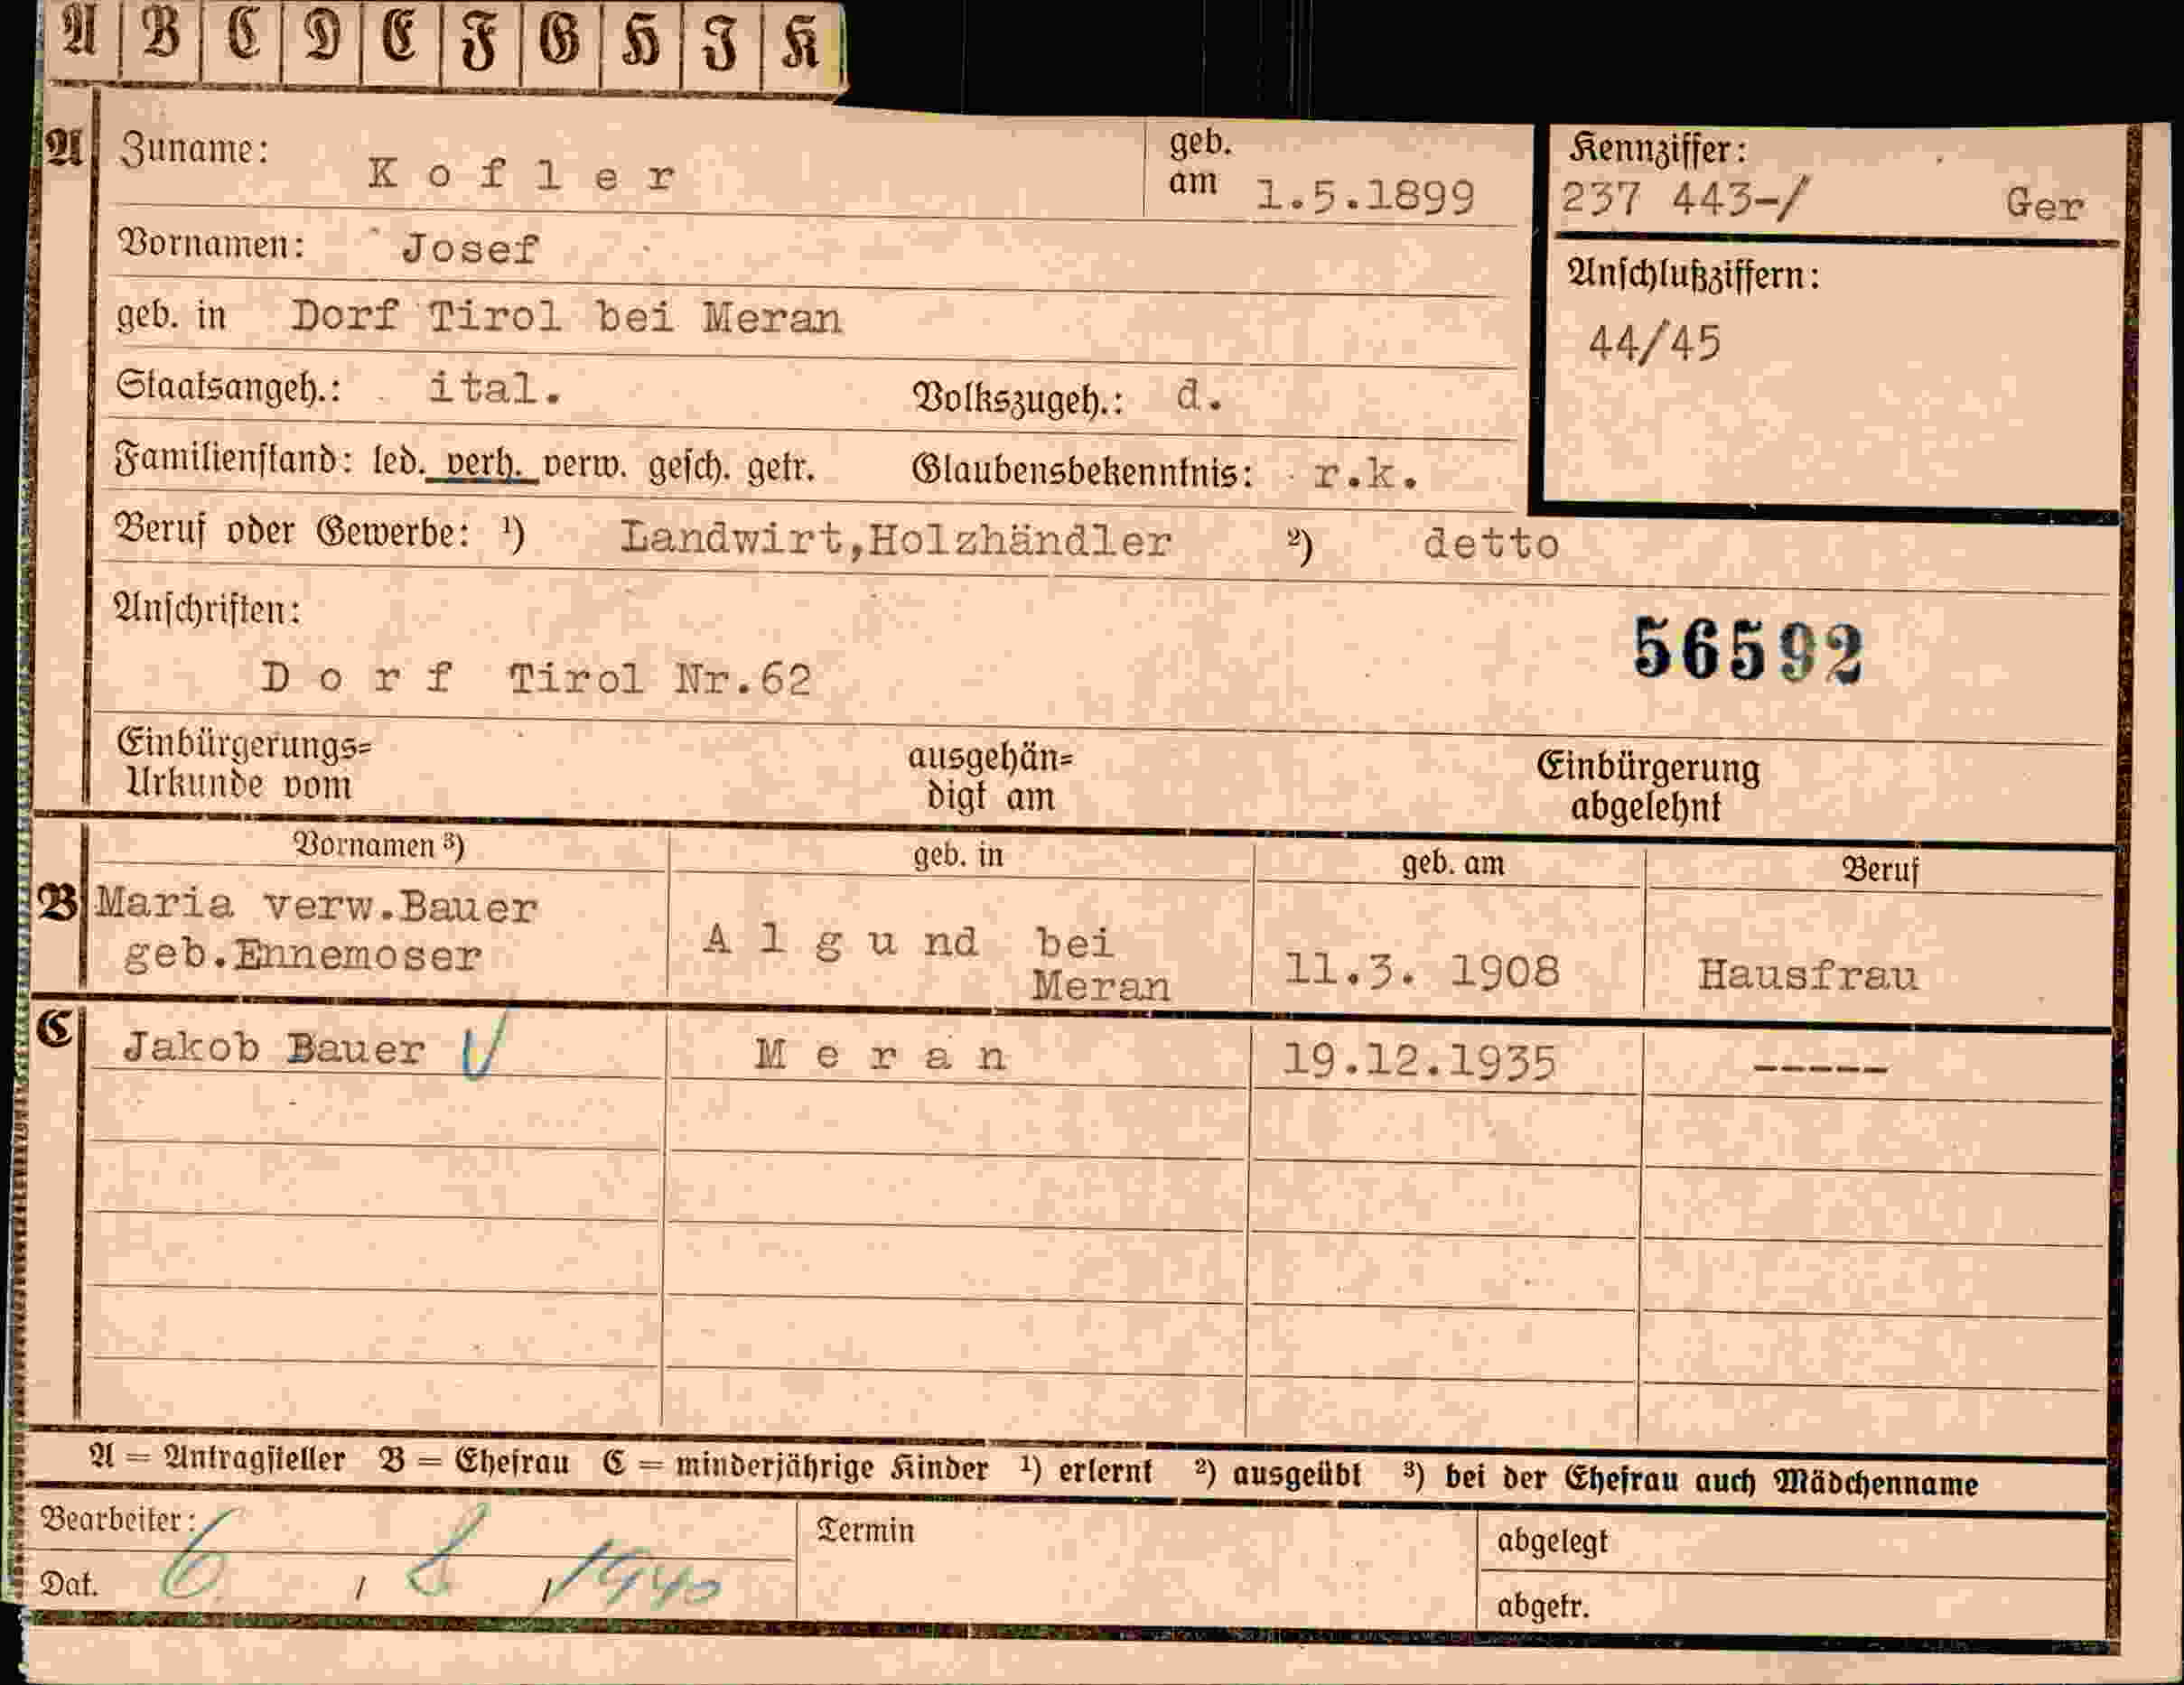 A B C D E F G H I K
A Zuname: Kofler geb. am 1.5.1899
Kennziffer:
237 443-/ Ger
Vornamen: Josef
Anschlußziffern:
44/45
geb. in Dorf Tirol bei Meran
Staatsangeh.: ital. Volkszugeh.: d.
Familienstand: led. verh. verw. gesch. getr. Glaubensbekenntnis: r.k.
Beruf oder Gewerbe: ¹) Landwirt,Holzhändler ²) detto
Anschriften:
56592
Dorf Tirol Nr.62
Einbürgerungs= ausgehän= Einbürgerung
Urkunde vom digt am abgelehnt
Vornamen ³) geb. in geb. am Beruf
B Maria verw.Bauer Algund bei
geb.Ennemoser Meran 11.3. 1908 Hausfrau
C Jakob Bauer Meran 19.12.1935 -----
A = Antragsteller B = Ehefrau C = minderjährige Kinder ¹) erlernt ²) ausgeübt ³) bei der Ehefrau auch Mädchenname
Bearbeiter: Termin abgelegt
Dat. 6 / 2 / 1940 abgetr.